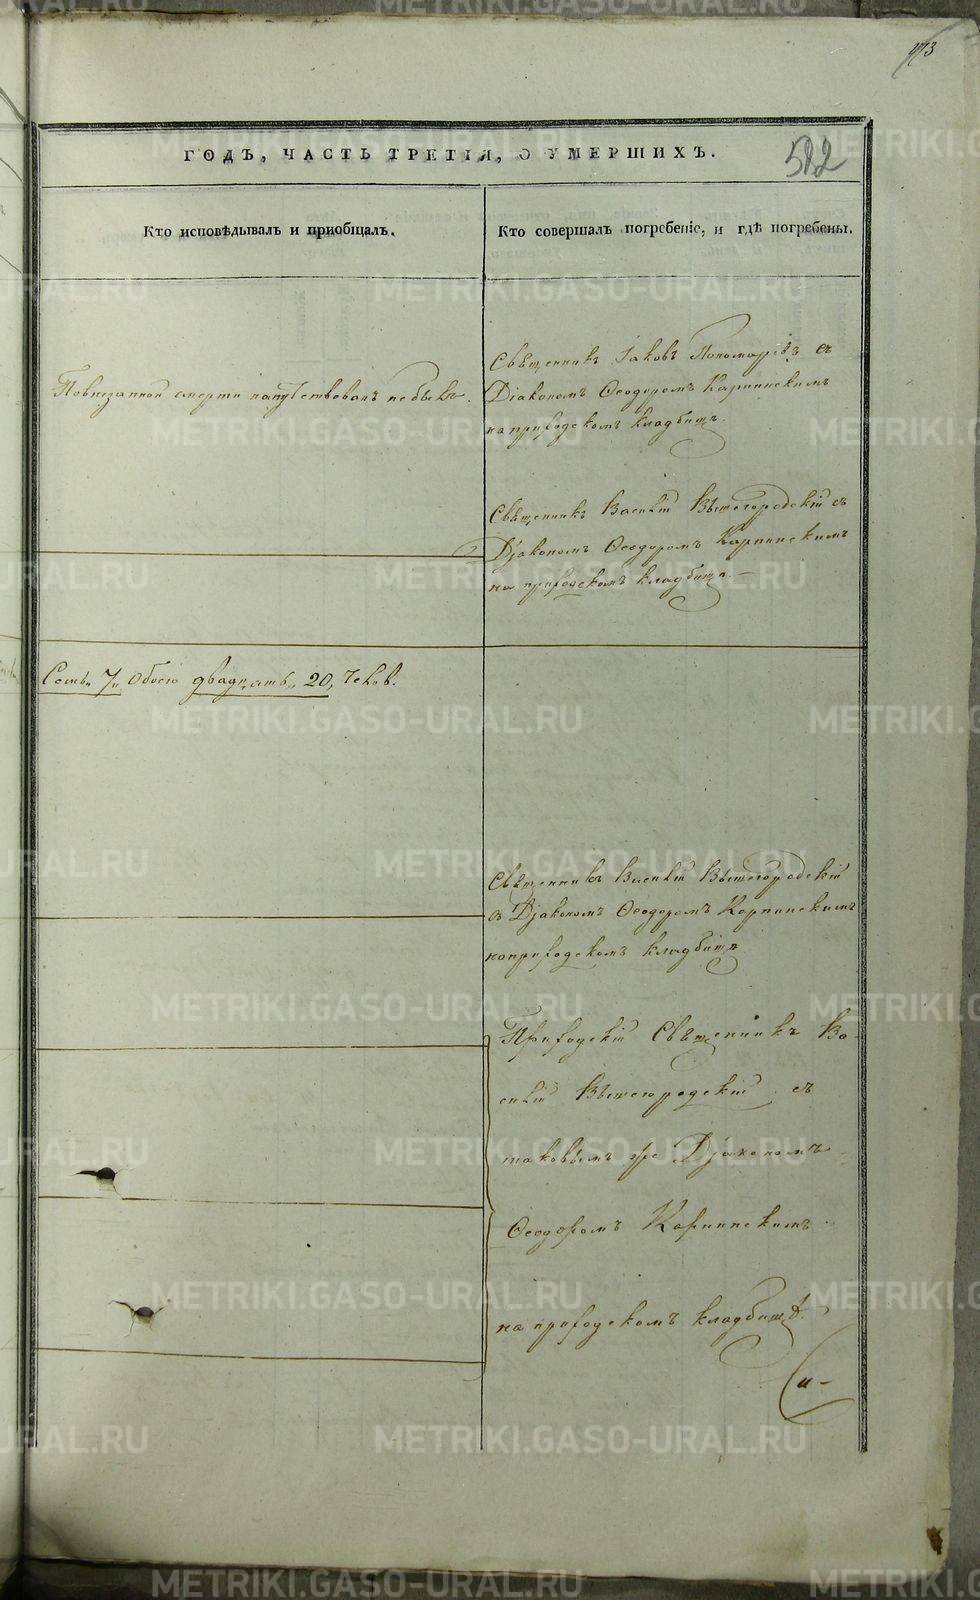 473
522
ГОДЪ, ЧАСТЬ ТРЕТІЯ, О УМЕРШИХЪ.
Кто исповѣдывалъ и приобщалъ.
Кто совершалъ погребеніе, и гдѣ погребены.
По внезапной смерти напутствованъ небылъ.
Священникъ Іаковъ Пономаревъ съ
Діакономъ Ѳеодоромъ Карпинскимъ
на приходскомъ кладбищѣ.
Священникъ Василій Вышегородскій съ
Діакономъ Ѳеодоромъ Карпинскимъ
на приходскомъ кладбищѣ.
Семь 7, Обоего двадцать, 20, Человѣкъ.
Священникъ Василій Вышегородскій
съ Діакономъ Ѳеодоромъ Карпинскимъ
на приходскомъ кладбищѣ
Приходскій Священникъ Ва-
силій Вышегородскій съ
таковымъ же Діакономъ
Ѳеодоромъ Карпинскимъ
на приходскомъ кладбищѣ.
и-
METRIKI.GASO-URAL.RU